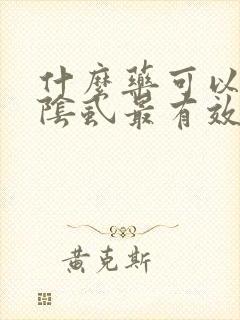 什麼藥可以
陰虱最有效
黃克斯